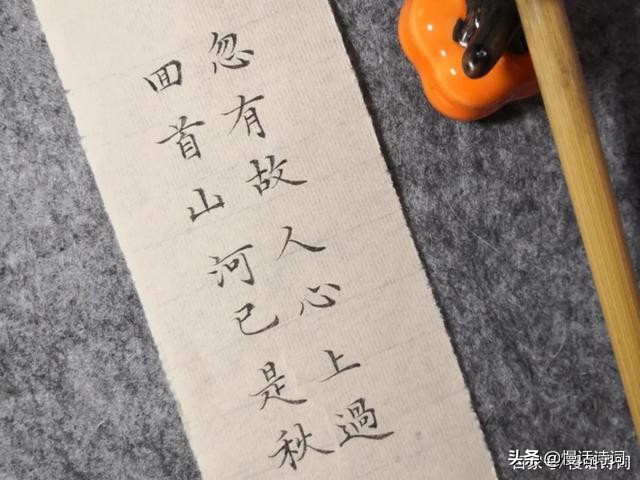 忽有故人心上過
回首山河已是秋
头条 @慢话诗词